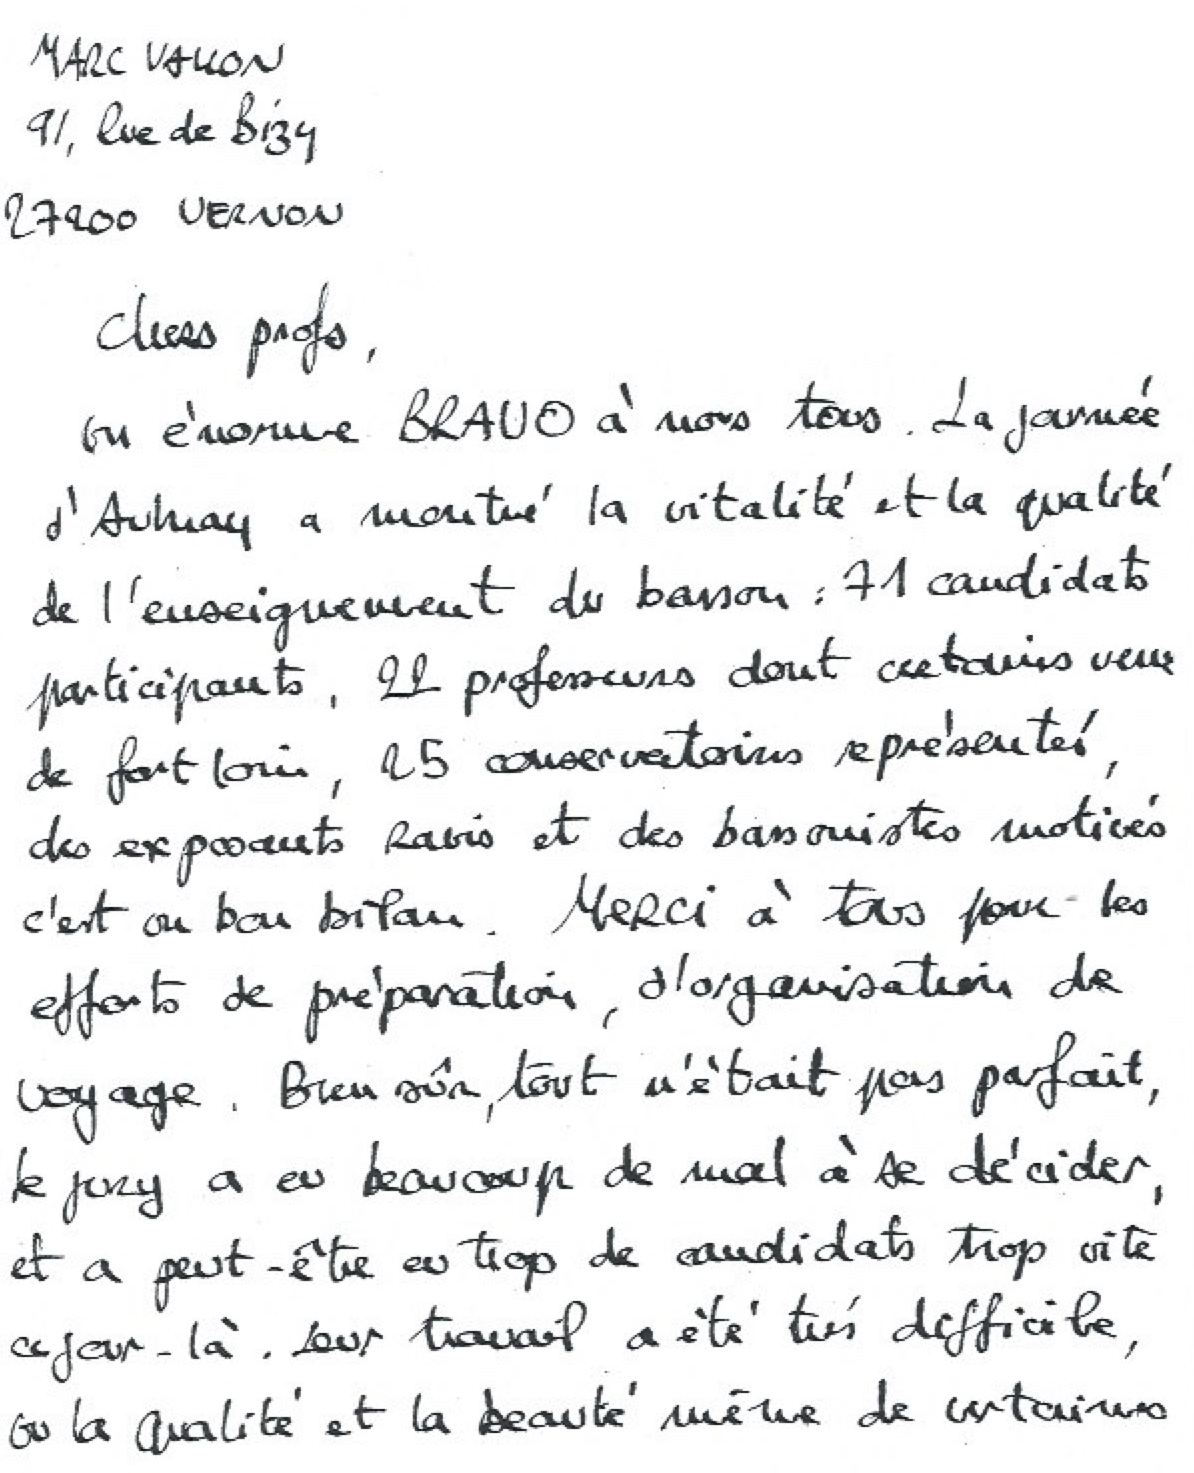 MARC VALLON
91, rue de Bizy
27200 VERNON
Chers profs,
un énorme BRAVO à nous tous. La journée
d'Aulnay a montré la vitalité et la qualité
de l'enseignement du basson : 71 candidats
participants, 22 professeurs dont certains venus
de fort loin, 25 conservatoires représentés,
des exposants ravis et des bassonistes motivés
c'est un bon bilan. MERCI à tous pour les
efforts de préparation, d'organisation de
voyage. Bien sûr, tout n'était pas parfait,
le jury a eu beaucoup de mal à se décider,
et a peut-être eu trop de candidats trop vite
ce jour-là. Leur travail a été très difficile,
vu la qualité et la beauté même de certaines